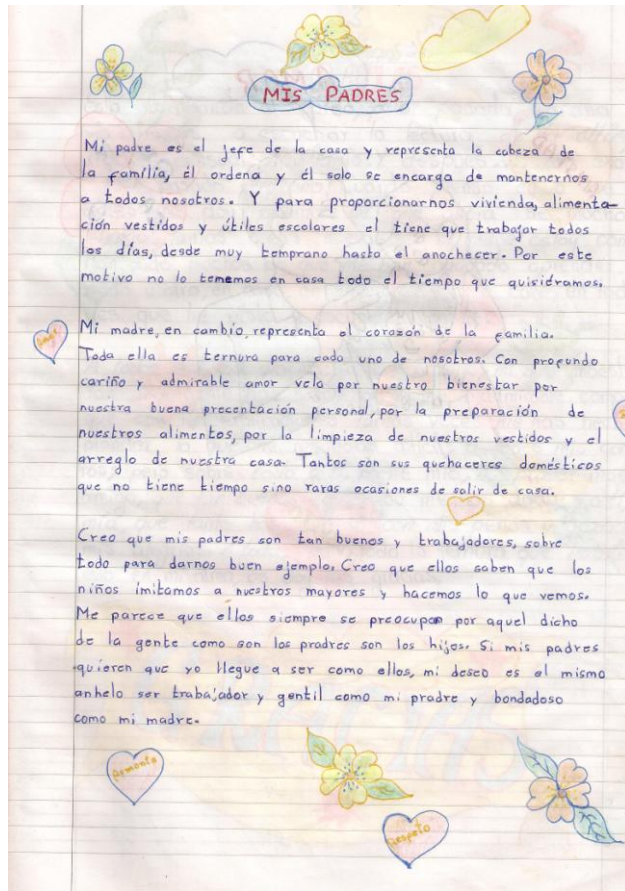 MIS PADRES
Mi padre es el jefe de la casa y representa la cabeza de
la familia, él ordena y él solo se encarga de mantenernos
a todos nosotros. Y para proporcionarnos vivienda, alimenta-
ción vestidos y útiles escolares el tiene que trabajar todos
los días, desde muy temprano hasta el anochecer. Por este
motivo no lo tenemos en casa todo el tiempo que quisiéramos.
Amor
Mi madre, en cambio, representa el corazón de la familia.
Toda ella es ternura para cada uno de nosotros. Con profundo
cariño y admirable amor vela por nuestro bienestar por
nuestra buena precentación personal, por la preparación de
nuestros alimentos, por la limpieza de nuestros vestidos y el
arreglo de nuestra casa. Tantos son sus quehaceres domésticos
que no tiene tiempo sino raras ocasiones de salir de casa.
Creo que mis padres son tan buenos y trabajadores, sobre
todo para darnos buen ejemplo. Creo que ellos saben que los
niños imitamos a nuestros mayores y hacemos lo que vemos.
Me parece que ellos siempre se preocupan por aquel dicho
de la gente como son los pradres son los hijos. Si mis padres
quieren que yo llegue a ser como ellos, mi deseo es el mismo
anhelo ser trabajador y gentil como mi pradre y bondadoso
como mi madre.
Armonía
Respeto